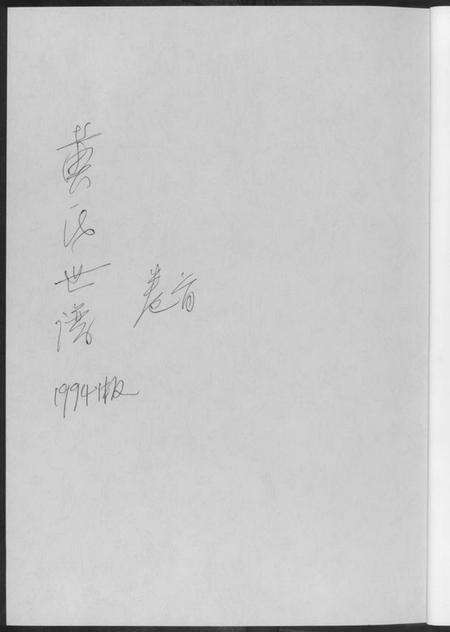 黄氏世谱
卷首
1994版